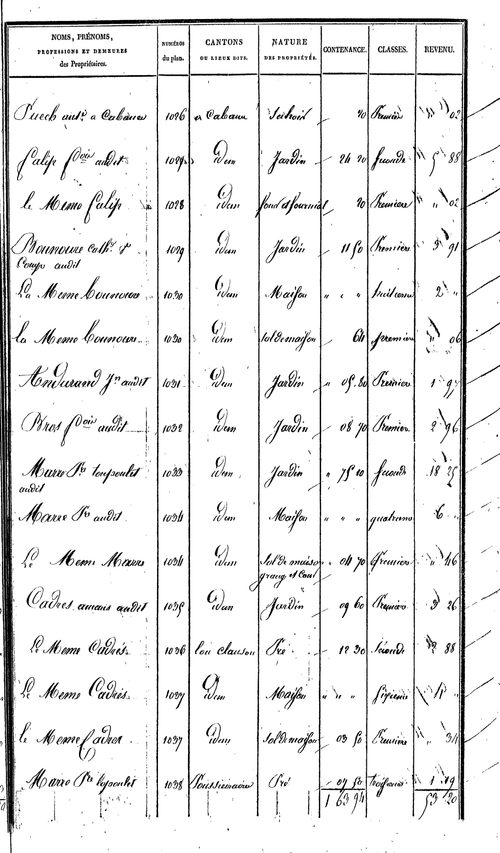 NOMS, PRÉNOMS, PROFESSIONS ET DEMEURES des Propriétaires. NUMÉROS du plan. CANTONS OU LIEUX DITS. NATURE DES PROPRIÉTÉS. CONTENANCE. CLASSES. REVENU.
Puech ant.e a Cabanes 1026 a Cabane Sechoir 20 Premiere " 02
Calip f.ois audit 1027 idem Jardin 24 20 Seconde 5 88
le Meme Calip 1028 idem four et fournial 20 Premiere " 02
Bounoure cath. et 1029 idem Jardin 11 50 Premiere 3 91
Comp. audit
La Meme Bounoure 1030 idem Maison " " " huitieme 2 "
la Meme Bounoure 1030 idem sol de maison 64 premiere " 06
Andurand J.n audit 1031 idem Jardin " 05 80 Premiere 1 97
Bros f.ois audit 1032 idem Jardin 08 70 Premiere 2 96
Marre P.re 1033 idem Jardin " 75 10 Seconde 18 25
audit
Marre P.re audit 1034 idem Maison " " " quatrieme 6 "
Le Meme Marre 1034 idem Sol de maison " 04 70 Premiere " 46
grange et cour
Cadres amans audit 1035 idem Jardin 09 60 Premiere 3 26
Le Meme Cadrés 1036 lou clausou Pré 12 30 Séconde 2 88
Le Meme Cadrés 1037 idem Maison " " " Sixieme 4 "
le Meme Cadres 1037 idem sol de maison 03 50 Premiere " 34
Marre P.re 1038 Pré 07 50 troisieme 1 19
1 63 94 53 20